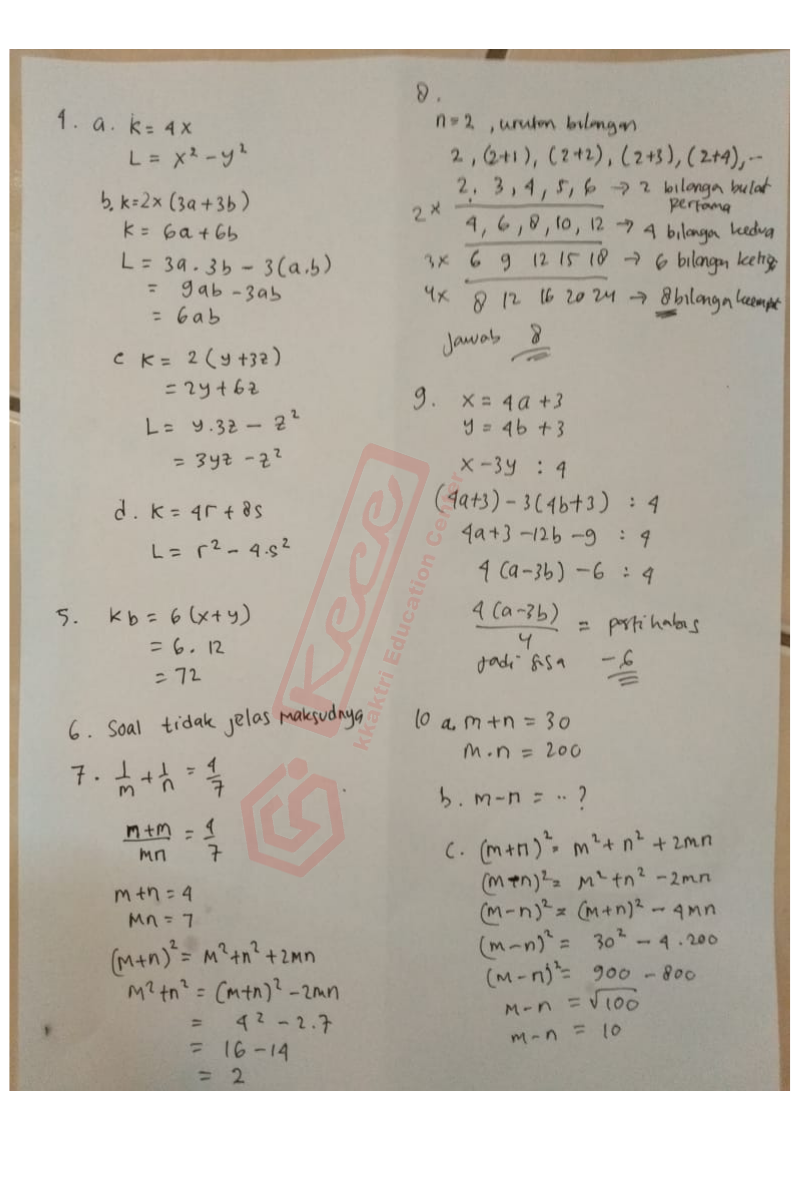 4. a. K = 4x
L = x² - y²
b. K = 2 x (3a + 3b)
K = 6a + 6b
L = 3a . 3b - 3(a.b)
= 9ab - 3ab
= 6ab
c K = 2 (y + 3z)
= 2y + 6z
L = y . 3z - z²
= 3yz - z²
d. K = 4r + 8s
L = r² - 4.s²
5. Kb = 6 (x+y)
= 6 . 12
= 72
6. Soal tidak jelas maksudnya
7. 1/m + 1/n = 4/7
m+m/mn = 4/7
m+n = 4
mn = 7
(m+n)² = m² + n² + 2mn
m² + n² = (m+n)² - 2mn
= 4² - 2.7
= 16 - 14
= 2
8.
n = 2 , urutan bilangan
2 , (2+1), (2+2), (2+3), (2+4), --
2, 3, 4, 5, 6 → 2 bilanga bulat pertama
2x 4, 6, 8, 10, 12 → 4 bilangan kedua
3x 6 9 12 15 18 → 6 bilangan ketiga
4x 8 12 16 20 24 → 8 bilanga
Jawab 8
9. x = 4a + 3
y = 4b + 3
x - 3y : 4
(4a+3) - 3(4b+3) : 4
4a + 3 - 12b - 9 : 4
4 (a-3b) - 6 : 4
4 (a-3b)/4 = pasti habis
Jadi sisa -6
10 a. m + n = 30
m . n = 200
b. m - n = .. ?
C. (m+n)² = m² + n² + 2mn
(m-n)² = m² + n² - 2mn
(m-n)² = (m+n)² - 4mn
(m-n)² = 30² - 4 . 200
(m-n)² = 900 - 800
m - n = √100
m - n = 10
Kece
kkaktri Education Center